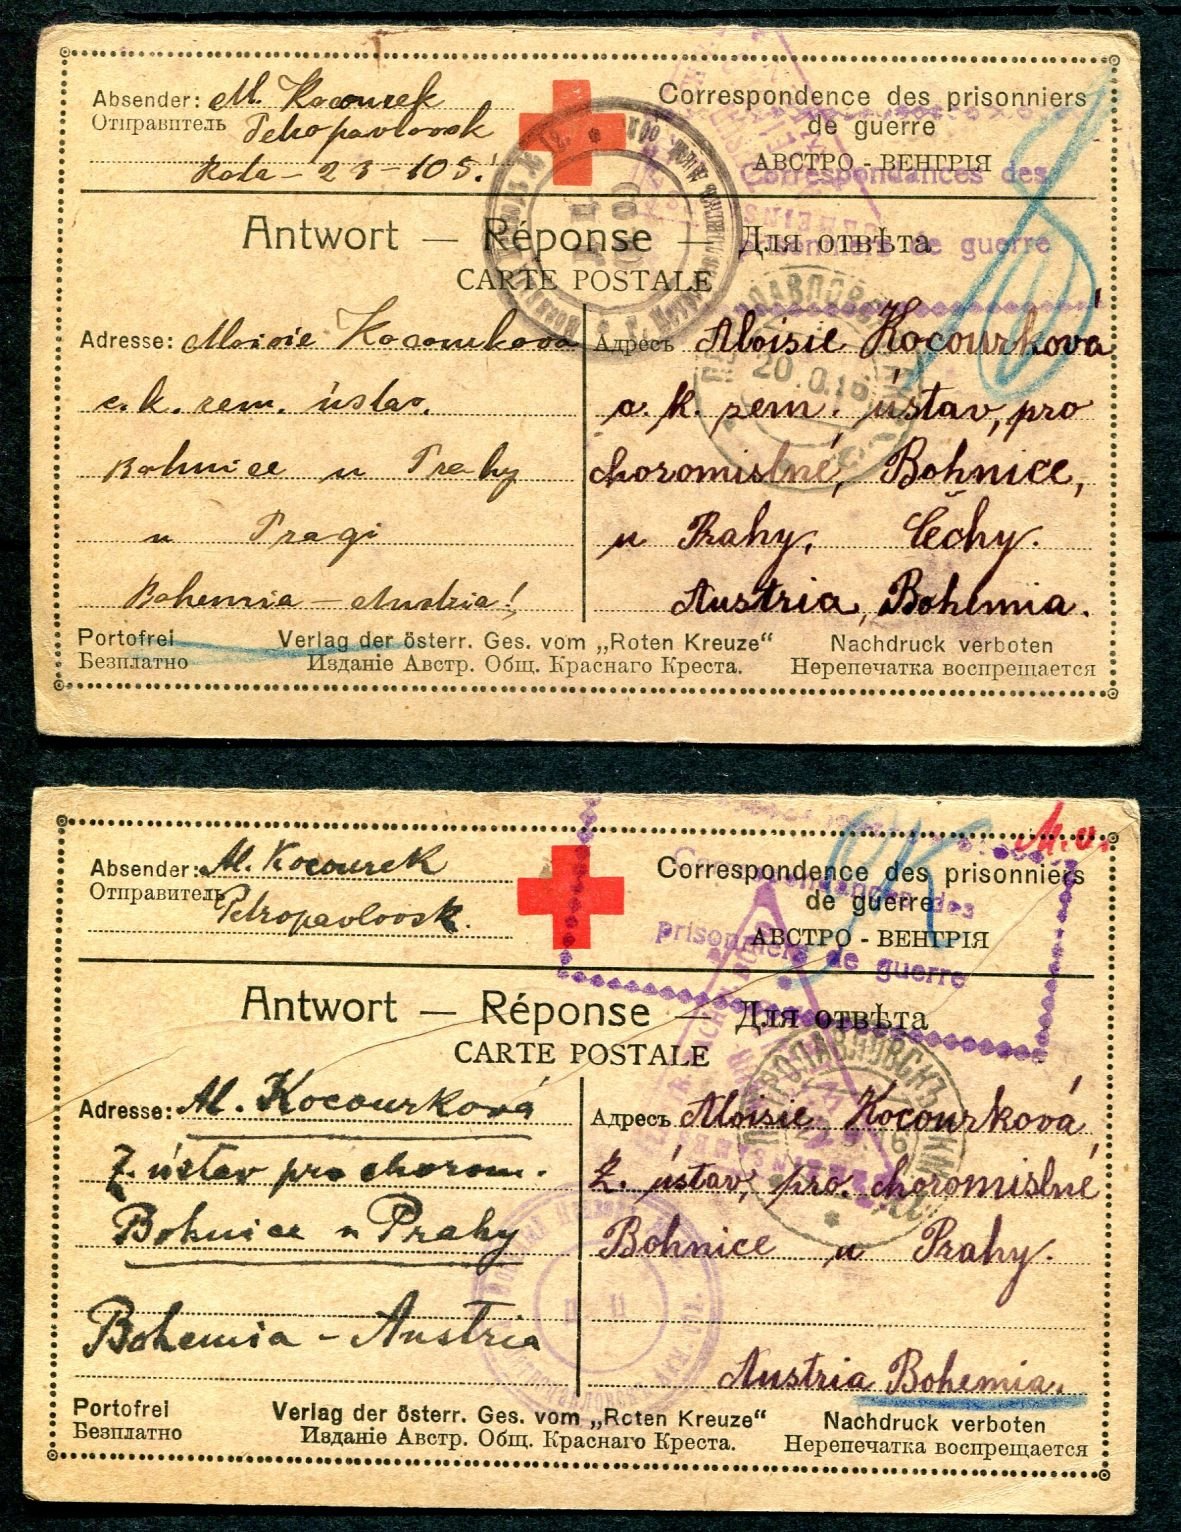 Absender: M. Kocourek
Отправитель Petropavlovsk
Rota - 23 - 105!
Correspondence des prisonniers
de guerre
АВСТРО - ВЕНГРІЯ
Correspondances des
prisonniers de guerre
Antwort — Réponse — Для отвѣта
CARTE POSTALE
20.0.16
Adresse: Aloisie Kocourková
c. k. zem. ústav.
Bohnice u Prahy
u Pragi
Bohemia - Austria!
Адресъ Aloisie Kocourková
c. k. zem. ústav, pro
choromislné, Bohnice,
u Prahy. Čechy.
Austria, Bohemia.
Portofrei Verlag der österr. Ges. vom „Roten Kreuze“ Nachdruck verboten
Безплатно Изданіе Австр. Общ. Краснаго Креста. Нерепечатка воспрещается
Absender: Al. Kocourek
Отправитель Petropavlovsk.
M.o.
Correspondence des prisonniers
de guerre
АВСТРО - ВЕНГРІЯ
Correspondances des
prisonniers de guerre
Antwort — Réponse — Для отвѣта
CARTE POSTALE
ПЕТРОПАВЛОВСКЪ
Adresse: Al. Kocourková
Z. ústav pro chorom.
Bohnice u Prahy
Bohemia - Austria
Адресъ Aloisie Kocourková
Z. ústav, pro. choromislné
Bohnice u Prahy.
Austria Bohemia.
Portofrei Verlag der österr. Ges. vom „Roten Kreuze“ Nachdruck verboten
Безплатно Изданіе Австр. Общ. Краснаго Креста. Нерепечатка воспрещается